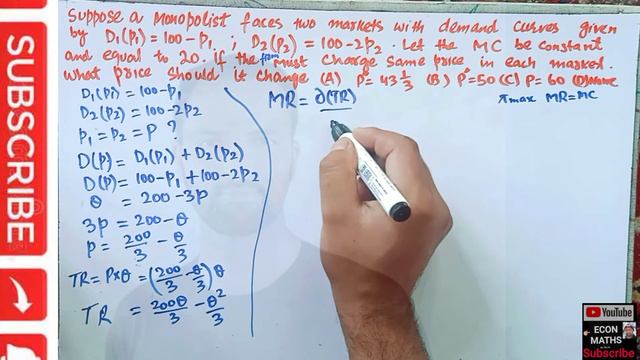 Suppose a Monopolist faces two markets with demand curves given
by D₁(P₁) = 100 - P₁ ; D₂(P₂) = 100 - 2P₂ . Let the MC be constant
and equal to 20. If the firm must charge same price in each market.
What price should it charge (A) P = 43 1/3 (B) P = 50 (C) P = 60 (D) None
D₁(P₁) = 100 - P₁
D₂(P₂) = 100 - 2P₂
P₁ = P₂ = P ?
D(P) = D₁(P₁) + D₂(P₂)
D(P) = 100 - P₁ + 100 - 2P₂
θ = 200 - 3P
3P = 200 - θ
P = 200/3 - θ/3
TR = P×θ = (200/3 - θ/3) θ
TR = 200θ/3 - θ²/3
MR = ∂(TR)
π max MR = MC
SUBSCRIBE
YouTube
ECON
MATHS
Subscribe